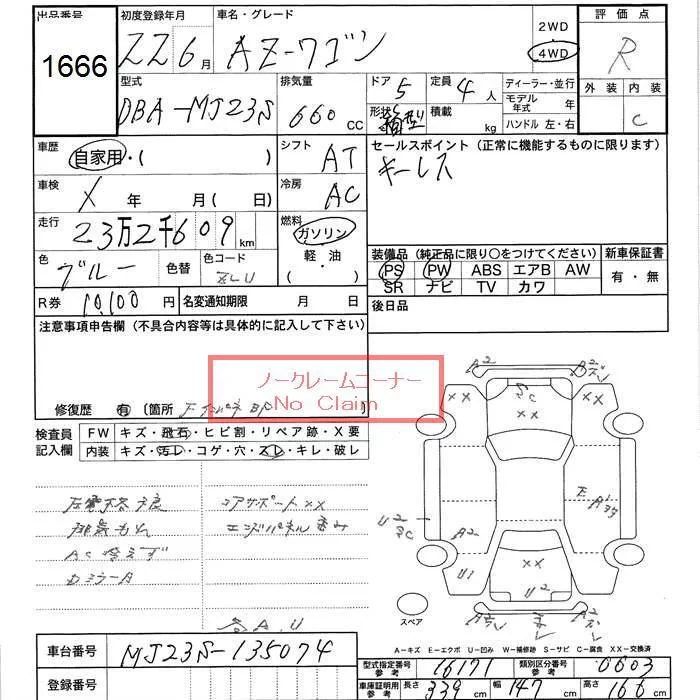 出品番号 初度登録年月 車名・グレード 2WD 評価点
1666 22 6月 AZ-ワゴン 4WD R
型式 排気量 ドア 5 定員 4人 ディーラー・並行 外装 内装
DBA-MJ23S 660 CC 形状 箱型 積載 kg モデル年式 年 C
ハンドル 左・右
車歴 自家用・( ) シフト AT セールスポイント (正常に機能するものに限ります)
キーレス
車検 X 年 月(日) 冷房 AC
走行 23万2千609 km 燃料 ガソリン 軽油 ( ・ )
装備品 (純正品に限り○をつけてください) 新車保証書
色 ブルー 色替 色コード PS PW ABS エアB AW 有・無
SR ナビ TV カワ
R券 10,100円 名変通知期限 月 日 後日品
注意事項申告欄 (不具合内容等は具体的に記入して下さい)
ノークレームコーナー
No Claim
修復歴 有 (箇所 )
検査員記入欄 FW キズ・飛石・ヒビ割・リペア跡・X要
内装 キズ・汚レ・コゲ・穴・スレ・キレ・破レ
コアサポートXX
排気もれ エンドパネル歪み
AC冷えず
各A、U
スペア
A-キズ E-エクボ U-凹み W-補修跡 S-サビ C-腐食 XX-交換済
車台番号 MJ23S-135074
型式指定番号参考 16171 類別区分番号参考 0603
登録番号
車庫証明用参考 長さ 339 cm 幅 147 cm 高さ 166 cm